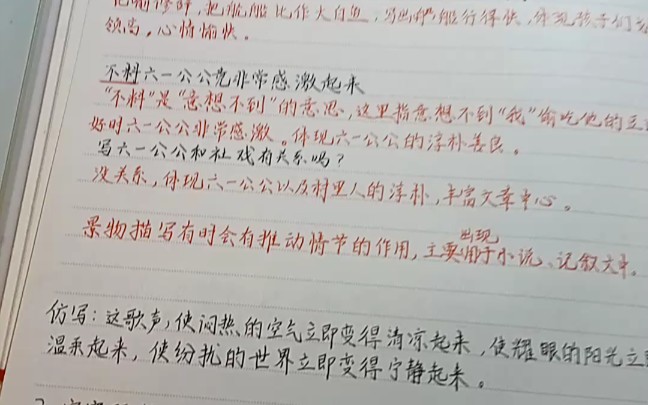 比喻修辞,把航船比作大白鱼,写出船行得快,体现孩子们
领高,心情愉快。
不料六一公公竟非常感激起来
"不料"是"意想不到"的意思,这里指意想不到"我"偷吃他的豆
好时六一公公非常感激。体现六一公公的淳朴善良。
写六一公公和社戏有关系吗?
没关系,体现六一公公以及村里人的淳朴,丰富文章中心。
景物描写有时会有推动情节的作用,主要出现于小说、记叙文中。
仿写:这歌声,使闷热的空气立即变得清凉起来,使耀眼的阳光立
温柔起来,使纷扰的世界立即变得宁静起来。